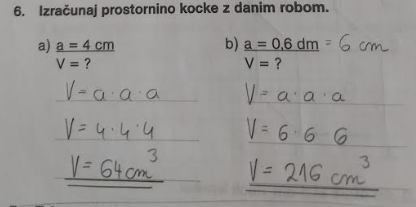 6. Izračunaj prostornino kocke z danim robom.
a) a = 4 cm
V = ?
V = a · a · a
V = 4 · 4 · 4
V = 64 cm³
b) a = 0,6 dm = 6 cm
V = ?
V = a · a · a
V = 6 · 6 · 6
V = 216 cm³